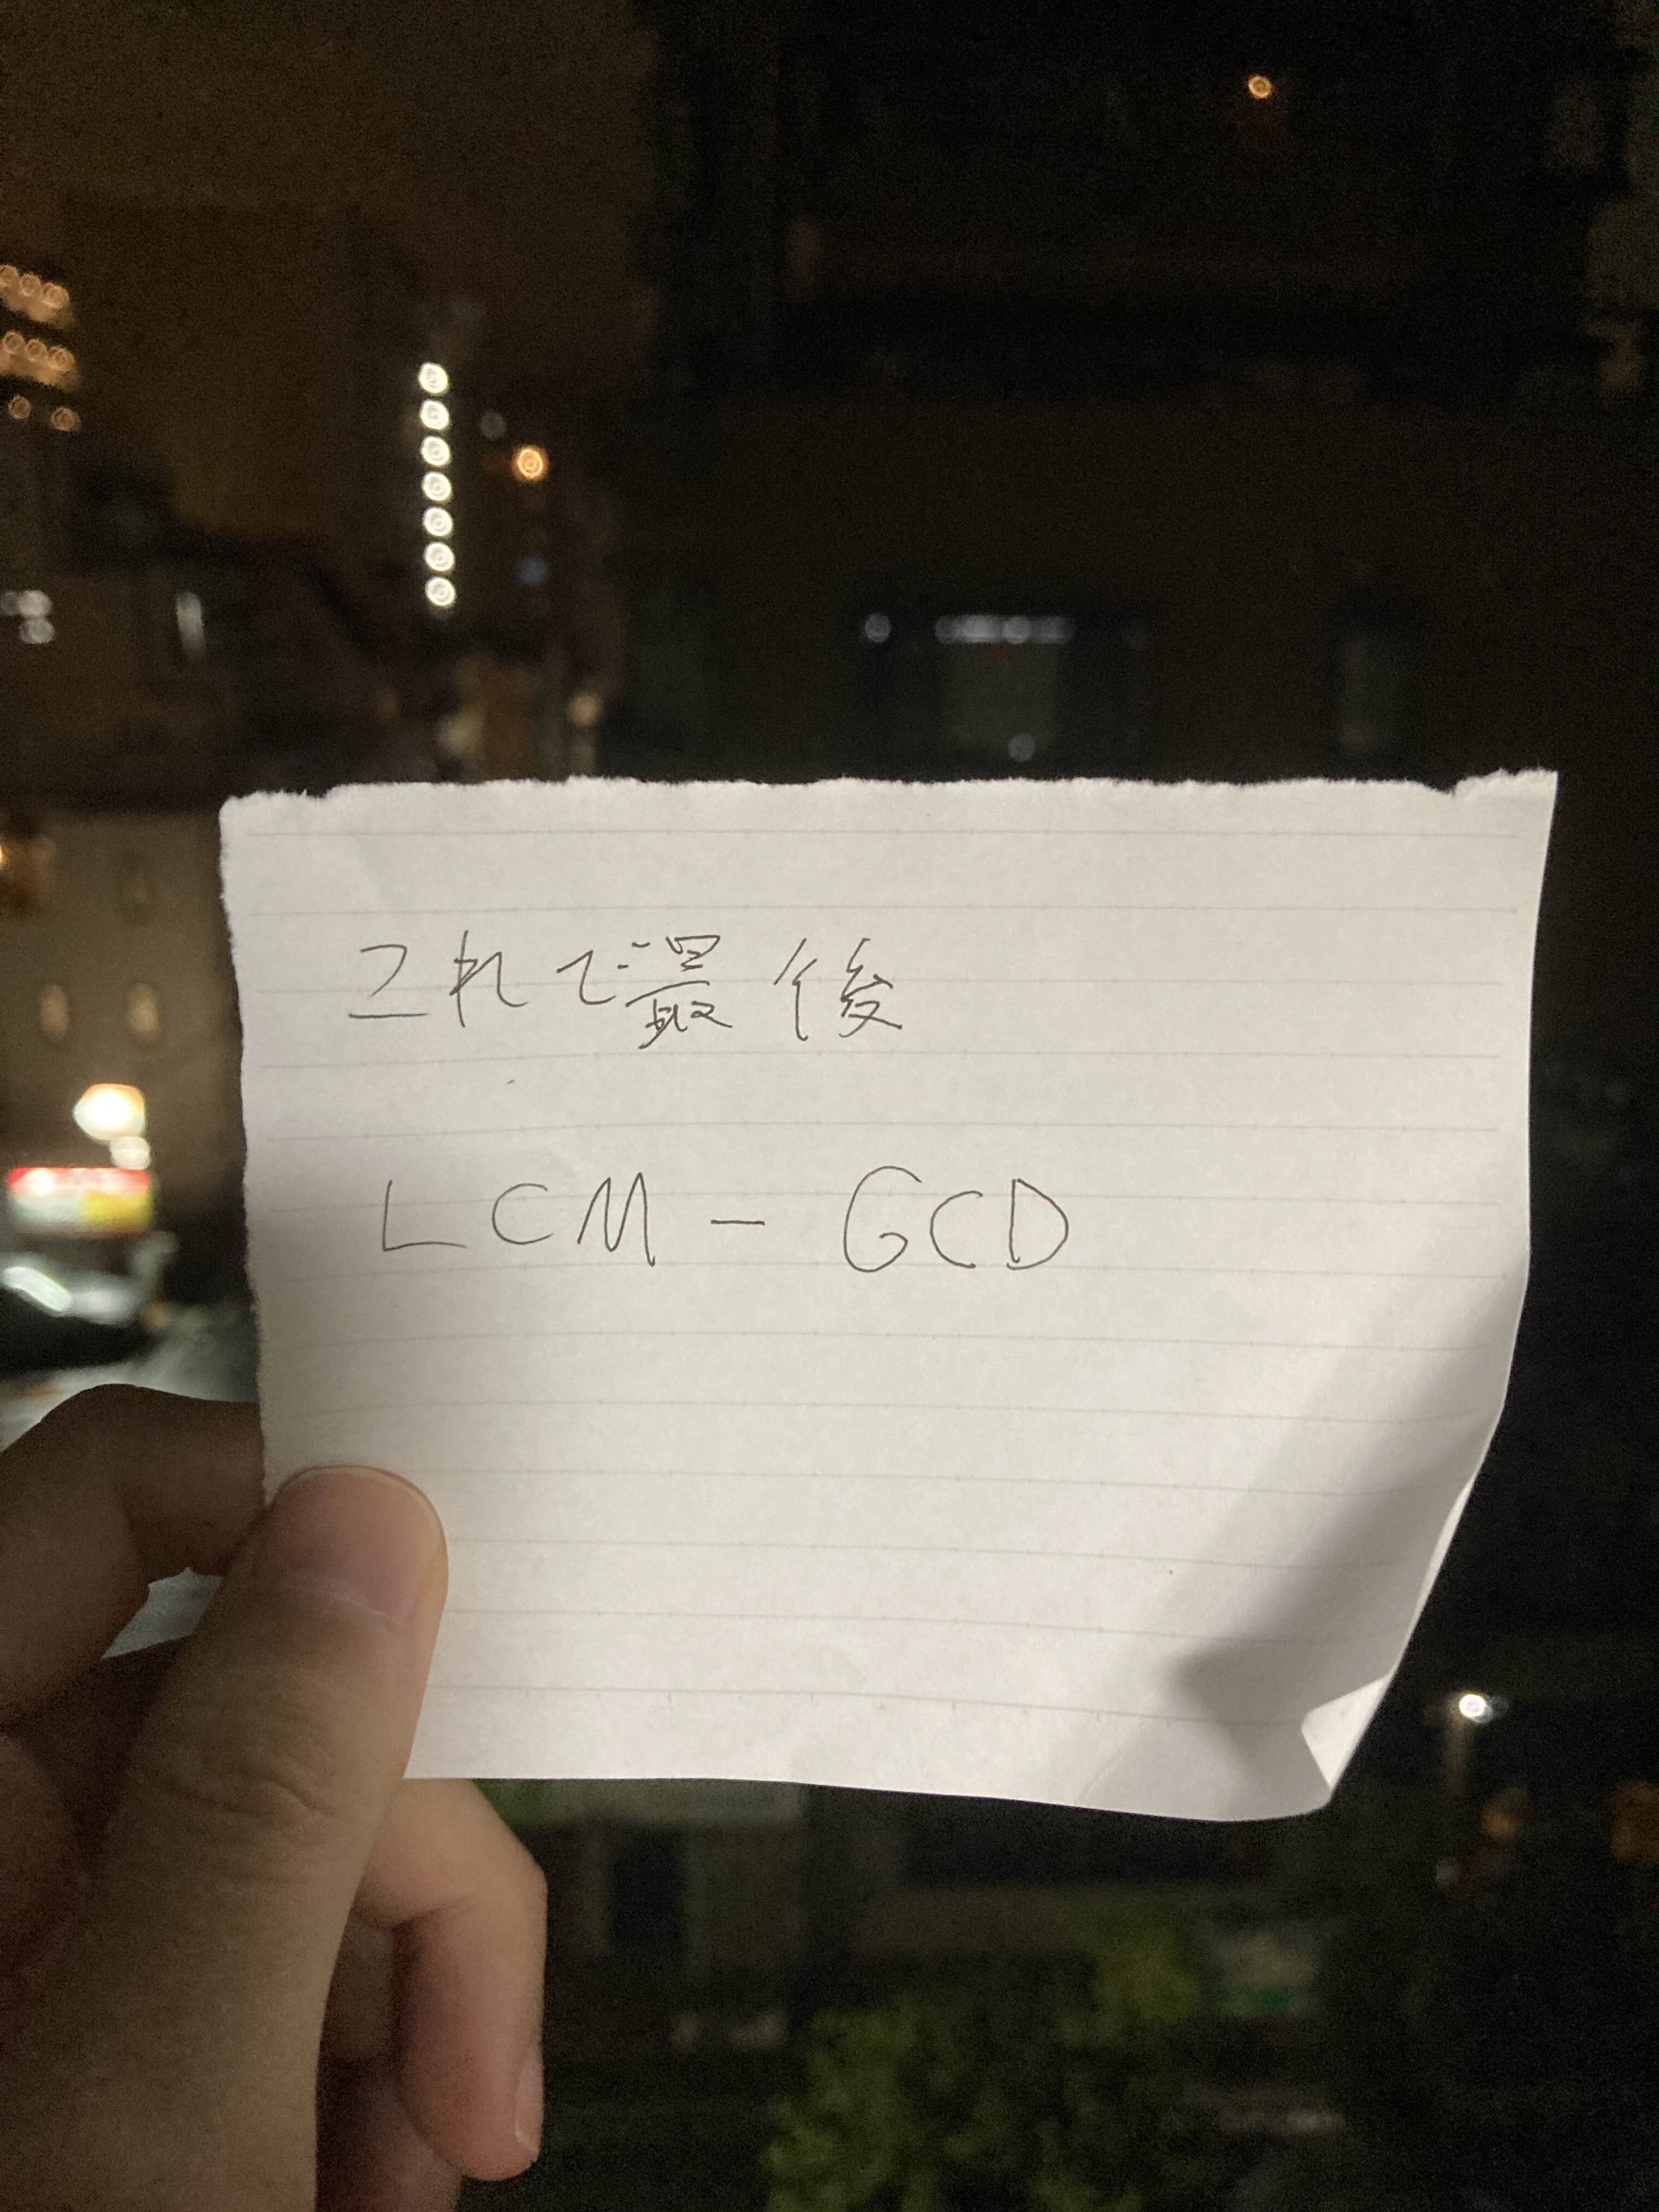 これで最後
LCM - GCD